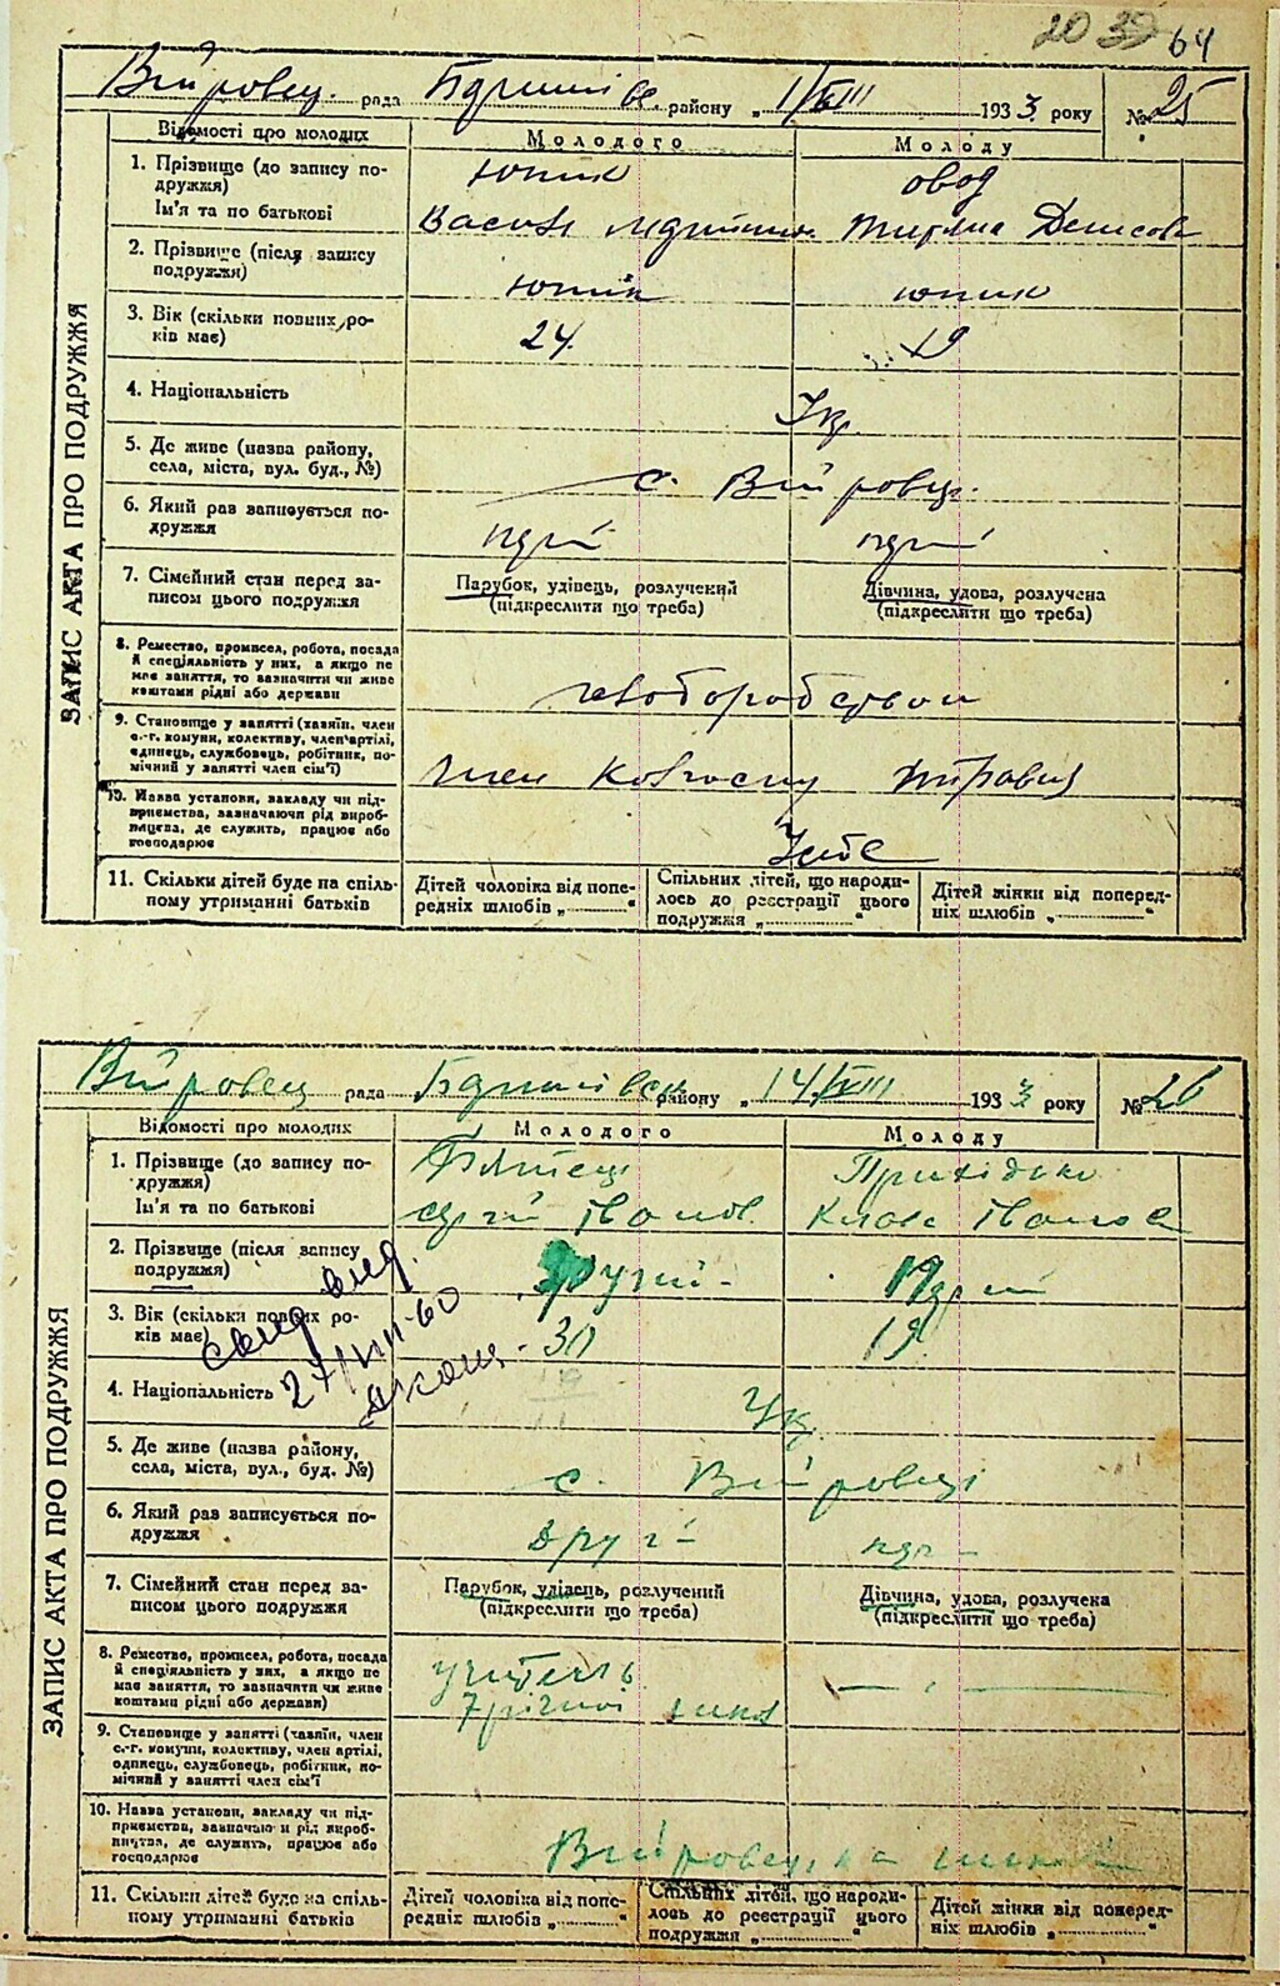 20 39 64
Війровец. рада Бериші вс. району „ 1/VIII 1933 року № 25
ЗАПИС АКТА ПРО ПОДРУЖЖЯ
Відомості про молодих
Молодого
Молоду
1. Прізвище (до запису по-
дружжя)
Ім'я та по батькові
юник
овод
Денисов
2. Прізвище (після запису
подружжя)
юник
юник
3. Вік (скільки повних ро-
ків має)
24.
19
4. Національність
Укр.
5. Де живе (назва району,
села, міста, вул. буд., №)
с. Війровец.
6. Який раз записується по-
дружжя
7. Сімейний стан перед за-
писом цього подружжя
Парубок, удівець, розлучений
(підкреслити що треба)
Дівчина, удова, розлучена
(підкреслити що треба)
8. Ремество, промисел, робота, посада
й спеціяльність у них, а якщо не
має заняття, то зазначити чи живе
коштами рідні або держави
9. Становище у занятті (хазяїн, член
с.-г. комуни, колективу, член артілі,
одинець, службовець, робітник, по-
мічний у занятті член сім'ї)
член
10. Назва установи, закладу чи під-
приємства, зазначаючи рід вироб-
ництва, де служить, працює або
господарює
11. Скільки дітей буде на спіль-
ному утриманні батьків
Дітей чоловіка від попе-
редніх шлюбів „ “
Спільних дітей, що народи-
лось до реєстрації цього
подружжя „ “
Дітей жінки від поперед-
ніх шлюбів „ “
Війровец рада району „ 14/VIII 1933 року № 26
ЗАПИС АКТА ПРО ПОДРУЖЖЯ
Відомості про молодих
Молодого
Молоду
1. Прізвище (до запису по-
дружжя)
Ім'я та по батькові
Прихідько
Сергій Іванов.
Іванов
2. Прізвище (після запису
подружжя)
3. Вік (скільки повних ро-
ків має)
30
19.
27/VIII-60
4. Національність
Укр.
5. Де живе (назва району,
села, міста, вул., буд. №)
с. Війровеці
6. Який раз записується по-
дружжя
7. Сімейний стан перед за-
писом цього подружжя
Парубок, удівець, розлучений
(підкреслити що треба)
Дівчина, удова, розлучена
(підкреслити що треба)
8. Ремество, промисел, робота, посада
й спеціяльність у них, а якщо не
має заняття, то зазначити чи живе
коштами рідні або держави)
учитель
7річної школ
9. Становище у занятті (хазяїн, член
с.-г. комуни, колективу, член артілі,
одинець, службовець, робітник, по-
мічний у занятті член сім'ї
10. Назва установи, закладу чи під-
приємства, зазначаючи рід вироб-
ництва, де служить, працює або
господарює
11. Скільки дітей буде на спіль-
ному утриманні батьків
Дітей чоловіка від попе-
редніх шлюбів „ “
Спільних дітей, що народи-
лось до реєстрації цього
подружжя „ “
Дітей жінки від поперед-
ніх шлюбів „ “